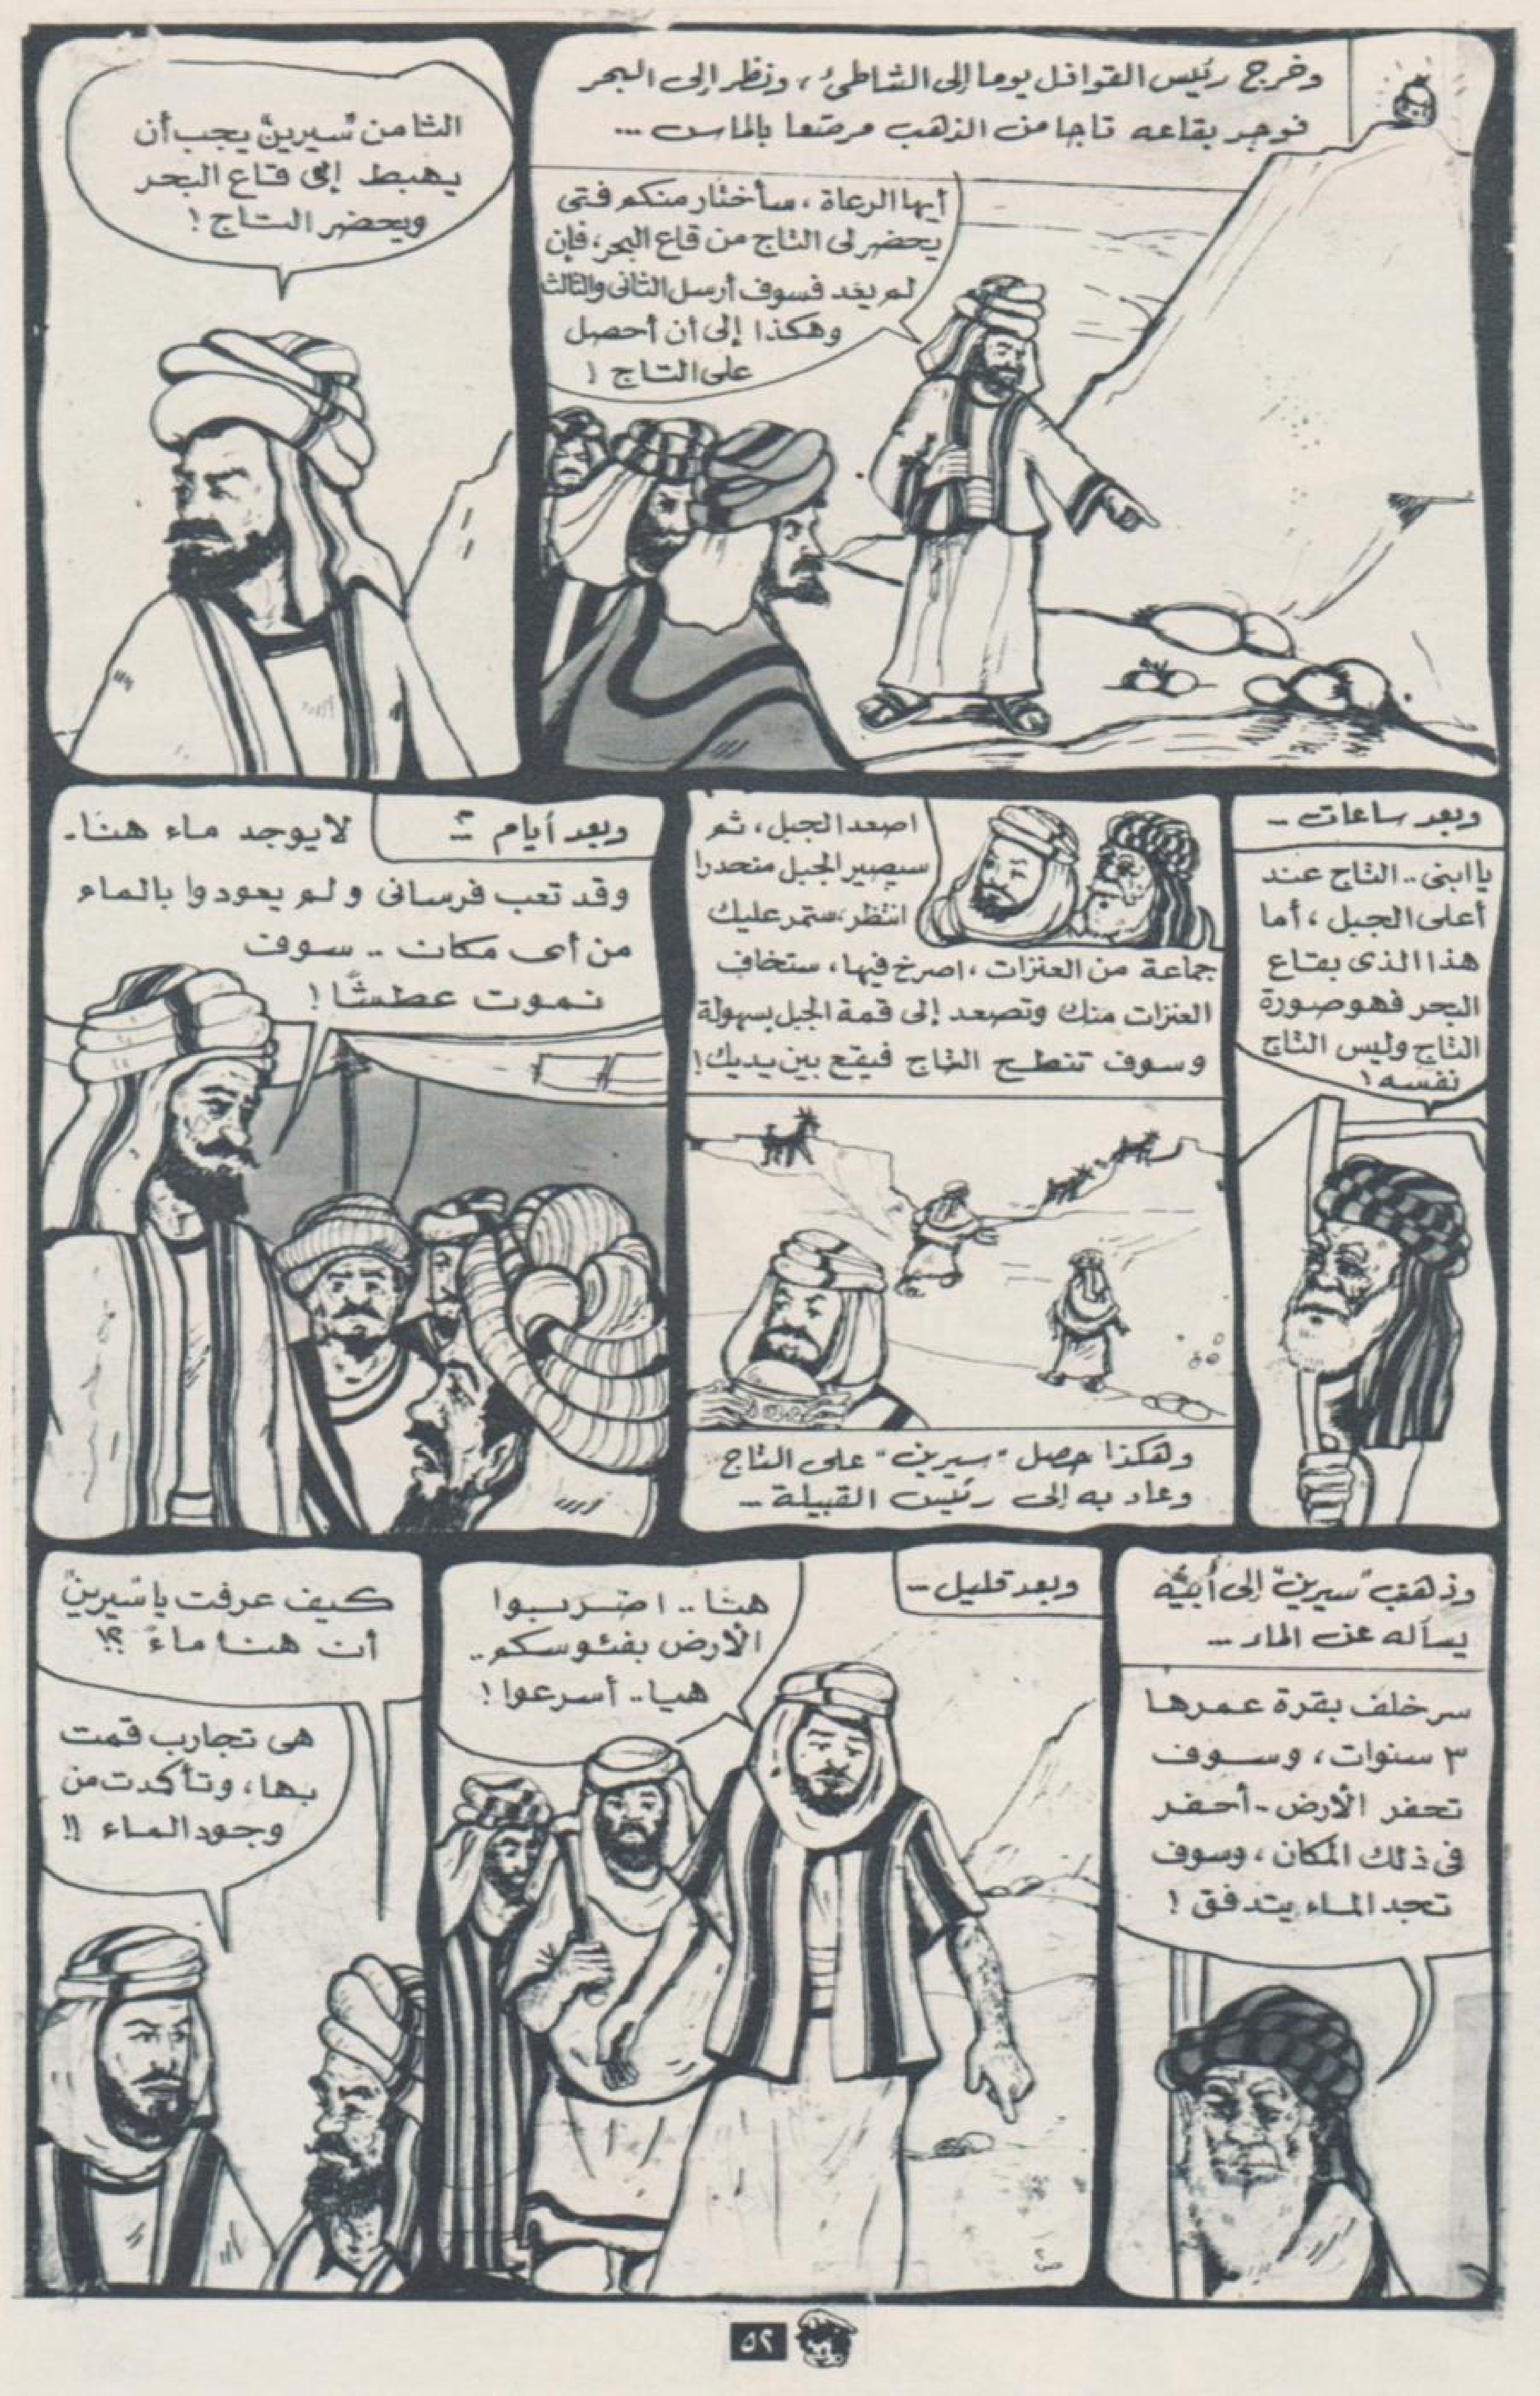 وخرج رئيس القوافل يوما إلى الشاطئ، ونظر إلى البحر
فوجد بقاعه تاجا من الذهب مرصعا بالماس ...
أيها الرعاة، سأختار منكم فتى
يحضر لى التاج من قاع البحر، فإن
لم يعد فسوف أرسل الثانى والثالث
وهكذا إلى أن أحصل
على التاج !
الثامن "سيرين" يجب أن
يهبط إلى قاع البحر
ويحضر التاج !
وبعد ساعات ..
يا ابنى .. التاج عند
أعلى الجبل، أما
هذا الذى بقاع
البحر فهو صورة
التاج وليس التاج
نفسه !
اصعد الجبل، ثم
سيصير الجبل منحدرا
انتظر، ستمر عليك
جماعة من العنزات، اصرخ فيها، ستخاف
العنزات منك وتصعد إلى قمة الجبل بسهولة
وسوف تنطح التاج فيقع بين يديك !
وهكذا حصل "سيرين" على التاج
وعاد به إلى رئيس القبيلة ..
وبعد أيام ..
لا يوجد ماء هنا.
وقد تعب فرسانى ولم يعودوا بالماء
من أى مكان .. سوف
نموت عطشًا !
وذهب "سيرين" إلى أبيه
يسأله عن الماء ...
سر خلف بقرة عمرها
٣ سنوات، وسوف
تحفر الأرض - أحفر
فى ذلك المكان، وسوف
تجد الماء يتدفق !
وبعد قليل ..
هنا .. اضربوا
الأرض بفئوسكم ..
هيا .. أسرعوا !
كيف عرفت يا "سيرين"
أن هنا ماءً ؟!
هى تجارب قمت
بها، وتأكدت من
وجود الماء !!
٥٢